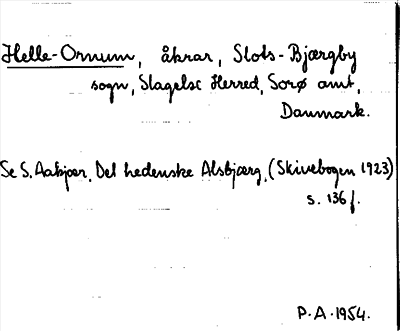 Helle-Ornum, åkrar, Slots-Bjærgby
sogn, Slagelse Herred, Sorø amt,
Danmark.
Se S. Aakjær, Det hedenske Alsbjærg, (Skivebogen 1923)
s. 136 f.
P.A. 1954.